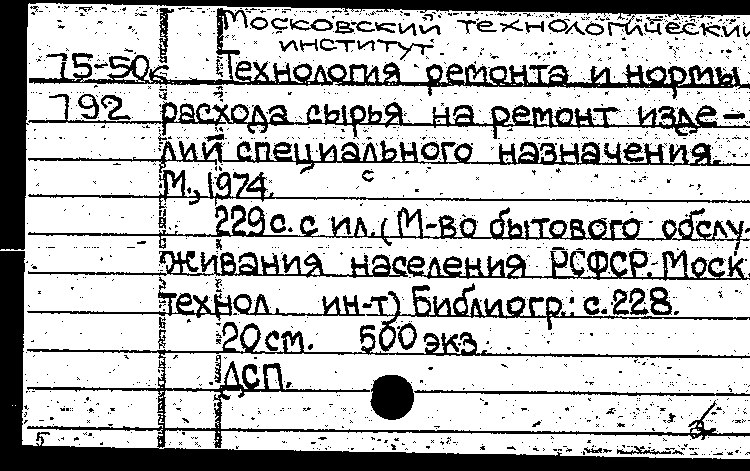 Московский технологический
институт
75-50к Технология ремонта и нормы
792 расхода сырья на ремонт изде-
лий специального назначения.
М., 1974.
229с. с ил. (М-во бытового обслу-
живания населения РСФСР. Моск.
технол. ин-т) Библиогр.: с. 228.
20 см. 500 экз.
ДСП.
5